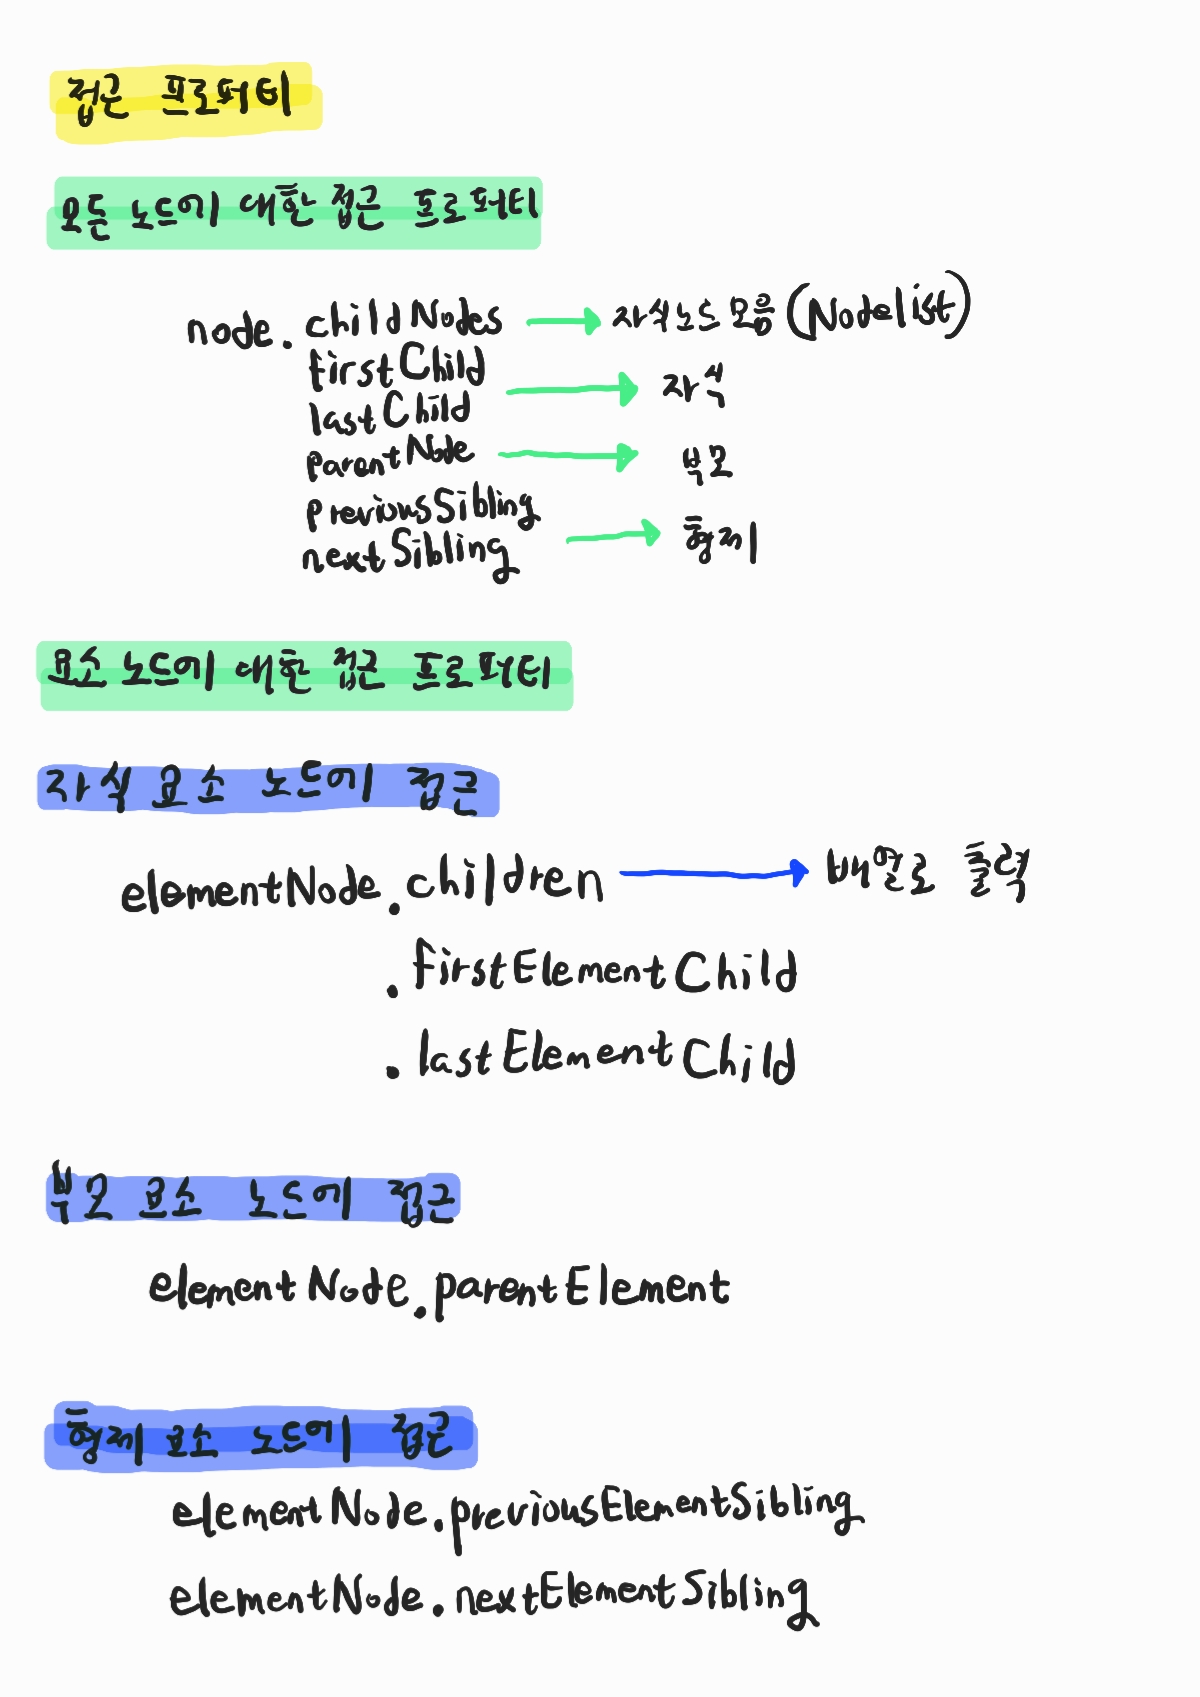 접근 프로퍼티
모든 노드에 대한 접근 프로퍼티
node. childNodes → 자식노드 모음 (Nodelist)
firstChild
lastChild → 자식
parentNode → 부모
previousSibling
nextSibling → 형제
요소 노드에 대한 접근 프로퍼티
자식 요소 노드에 접근
elementNode.children → 배열로 출력
.firstElementChild
.lastElementChild
부모 요소 노드에 접근
elementNode.parentElement
형제 요소 노드에 접근
elementNode.previousElementSibling
elementNode.nextElementSibling